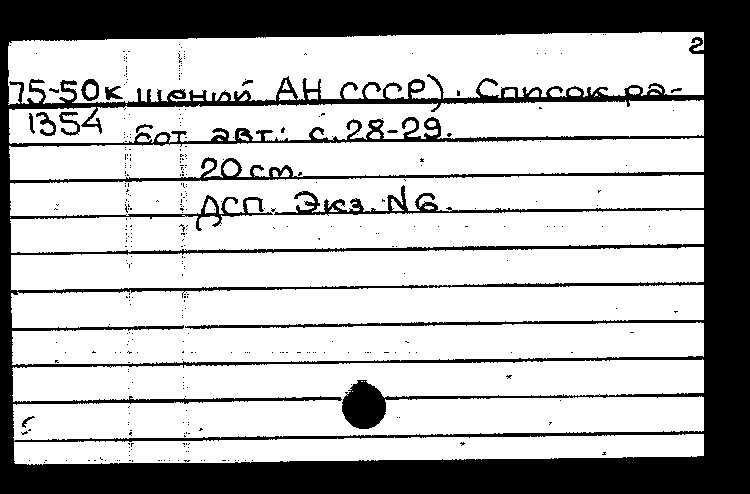 2
75-50к щений АН СССР). Список ра-
1354 бот авт.: с. 28-29.
20 см.
ДСП. Экз. N6.